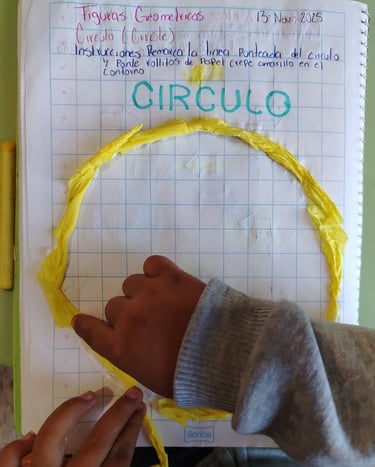 Figuras Geometricas 13-Nov-2025
Circulo (Circle)
Instrucciones: Remarca la linea punteada del circulo
y Ponle rollitos de Papel crepe amarillo en el
contorno
CIRCULO
Scribe